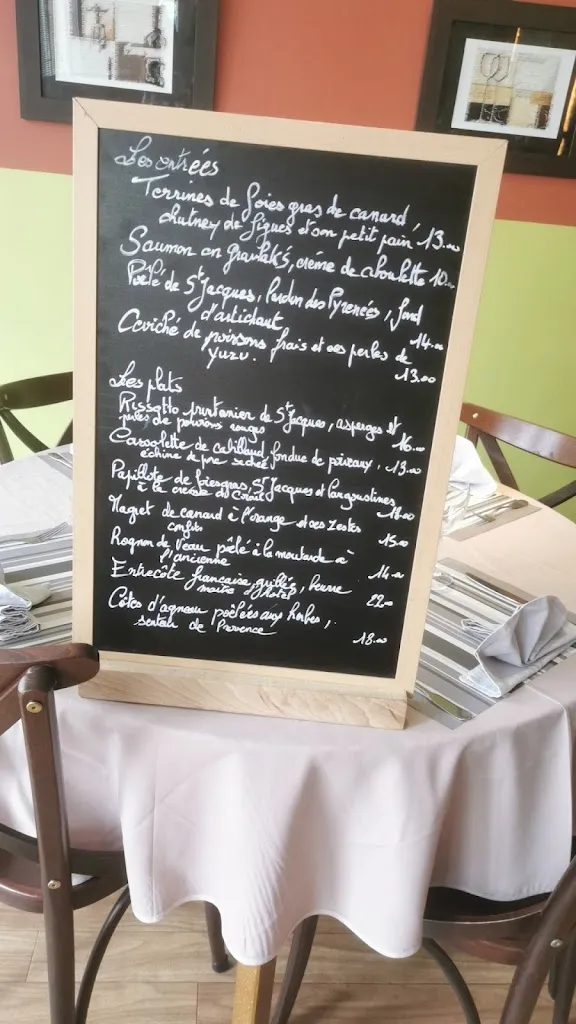 Les entrées
Terrines de foies gras de canard,
chutney de figues et son petit pain 13.00
Saumon en gravlak's, crème de ciboulette 10.00
Poêlé de St Jacques, lardon des Pyrenées, fond
d'artichaut 14.00
Ceviché de poissons frais et ses perles de
yuzu. 13.00
Les plats
Rissotto printanier de St Jacques, asperges et
perles de poivrons rouges 16.00
Cassolette de cabillaud, fondue de poireaux, 13.00
échine de porc sechée
Papillote de foies gras, St Jacques et langoustines
à la crème de 18.00
Magret de canard à l'orange et ses zestes
confits 15.00
Rognon de veau pôêlé à la moutarde à
l'ancienne 14.00
Entrecôte française grillée, beurre
maitre d'hotel 22.00
Côtes d'agneau poêlées aux herbes,
senteur de Provence 18.00